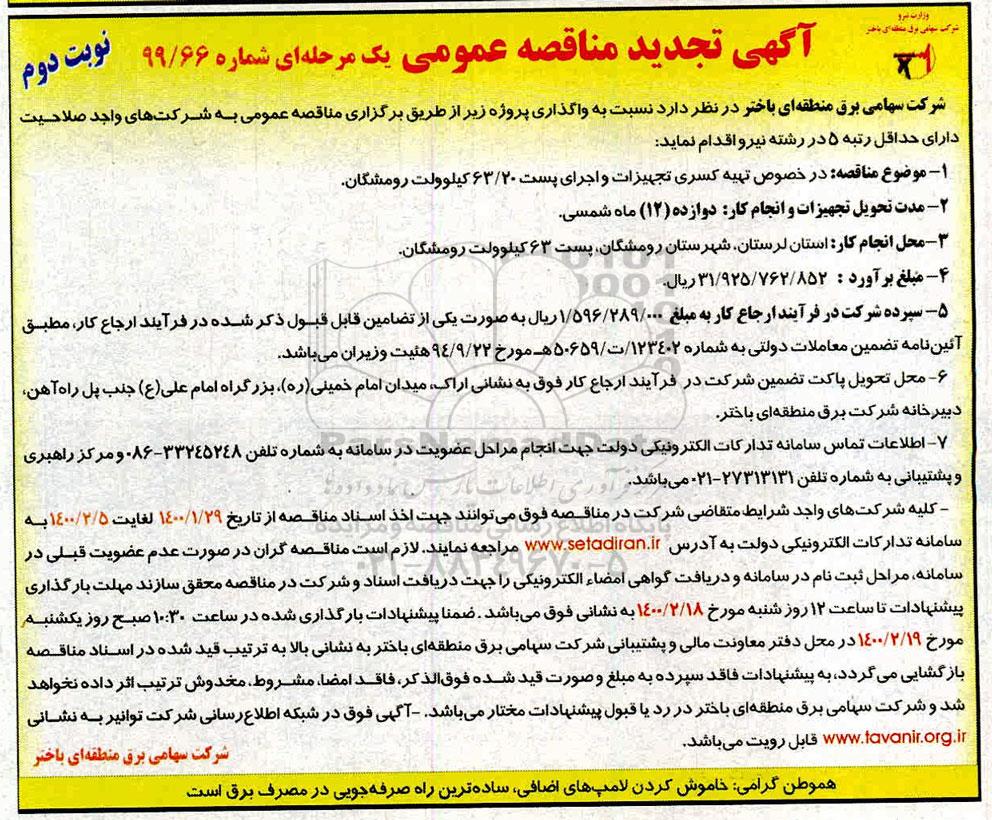 وزارت نیرو
شرکت سهامی برق منطقه‌ای باختر
آگهی تجدید مناقصه عمومی یک مرحله‌ای شماره ۹۹/۶۶
نوبت دوم
شرکت سهامی برق منطقه‌ای باختر در نظر دارد نسبت به واگذاری پروژه زیر از طریق برگزاری مناقصه عمومی به شرکت‌های واجد صلاحیت
دارای حداقل رتبه ۵ در رشته نیرو اقدام نماید:
۱- موضوع مناقصه: در خصوص تهیه کسری تجهیزات و اجرای پست ۶۳/۲۰ کیلوولت رومشگان.
۲- مدت تحویل تجهیزات و انجام کار: دوازده (۱۲) ماه شمسی.
۳- محل انجام کار: استان لرستان، شهرستان رومشگان، پست ۶۳ کیلوولت رومشگان.
۴- مبلغ برآورد : ۳۱/۹۲۵/۷۶۲/۸۵۲ ریال.
۵- سپرده شرکت در فرآیند ارجاع کار به مبلغ ۱/۵۹۶/۲۸۹/۰۰۰ ریال به صورت یکی از تضامین قابل قبول ذکر شده در فرآیند ارجاع کار، مطبق
آئین‌نامه تضمین معاملات دولتی به شماره ۱۲۳۴۰۲/ت/۵۰۶۵۹ هـ مورخ ۹۴/۹/۲۲ هئیت وزیران می‌باشد.
۶- محل تحویل پاکت تضمین شرکت در فرآیند ارجاع کار فوق به نشانی اراک، میدان امام خمینی(ره)، بزرگراه امام علی(ع) جنب پل راه‌آهن،
دبیرخانه شرکت برق منطقه‌ای باختر.
۷- اطلاعات تماس سامانه تدارکات الکترونیکی دولت جهت انجام مراحل عضویت در سامانه به شماره تلفن ۳۳۲۴۵۲۴۸-۰۸۶ و مرکز راهبری
و پشتیبانی به شماره تلفن ۲۷۳۱۳۱۳۱-۰۲۱ می‌باشد.
- کلیه شرکت‌های واجد شرایط متقاضی شرکت در مناقصه فوق می‌توانند جهت اخذ اسناد مناقصه از تاریخ ۱۴۰۰/۱/۲۹ لغایت ۱۴۰۰/۲/۵ به
سامانه تدارکات الکترونیکی دولت به آدرس www.setadiran.ir مراجعه نمایند. لازم است مناقصه گران در صورت عدم عضویت قبلی در
سامانه، مراحل ثبت نام در سامانه و دریافت گواهی امضاء الکترونیکی را جهت دریافت اسناد و شرکت در مناقصه محقق سازند مهلت بارگذاری
پیشنهادات تا ساعت ۱۲ روز شنبه مورخ ۱۴۰۰/۲/۱۸ به نشانی فوق می‌باشد. ضمنا پیشنهادات بارگذاری شده در ساعت ۱۰:۳۰ صبح روز یکشنبه
مورخ ۱۴۰۰/۲/۱۹ در محل دفتر معاونت مالی و پشتیبانی شرکت سهامی برق منطقه‌ای باختر به نشانی بالا به ترتیب قید شده در اسناد مناقصه
بازگشایی می‌گردد، به پیشنهادات فاقد سپرده به مبلغ و صورت قید شده فوق‌الذکر، فاقد امضا، مشروط، مخدوش ترتیب اثر داده نخواهد
شد و شرکت سهامی برق منطقه‌ای باختر در رد یا قبول پیشنهادات مختار می‌باشد. -آگهی فوق در شبکه اطلاع‌رسانی شرکت توانیر به نشانی
www.tavanir.org.ir قابل رویت می‌باشد.
شرکت سهامی برق منطقه‌ای باختر
هموطن گرامی: خاموش کردن لامپ‌های اضافی، ساده‌ترین راه صرفه‌جویی در مصرف برق است